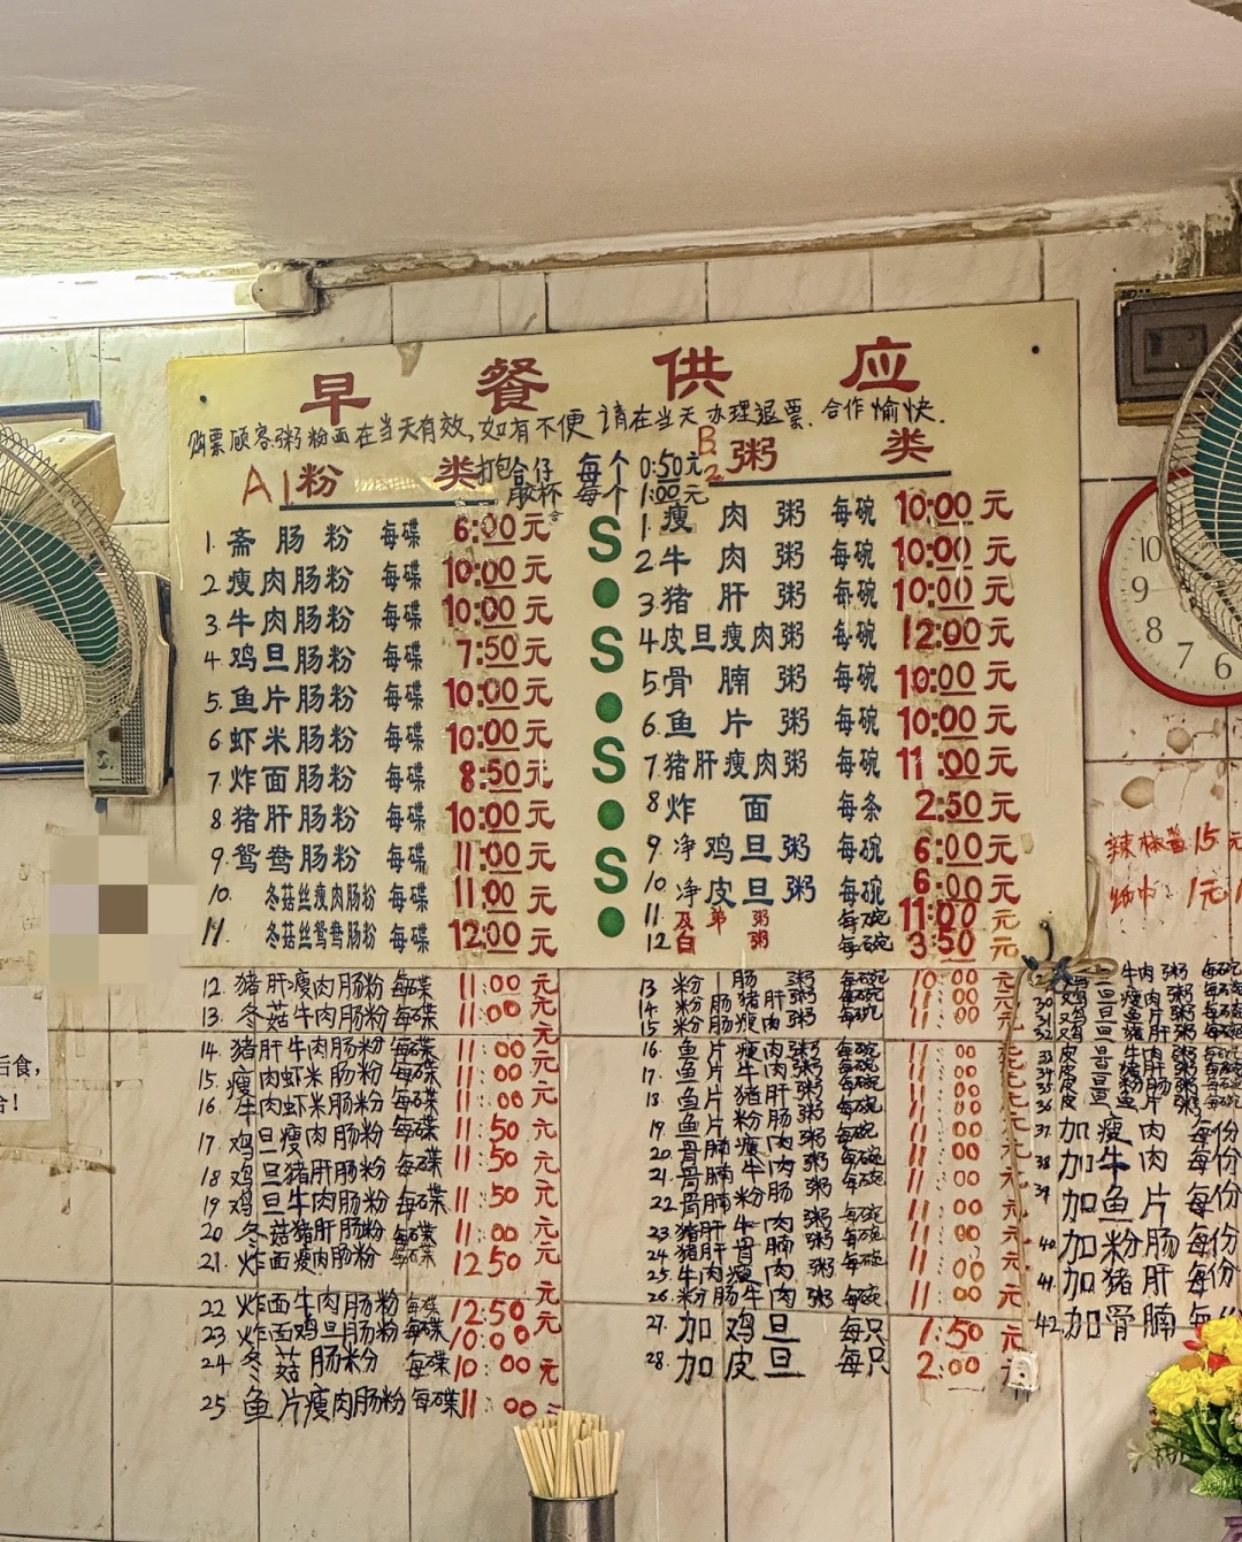 早餐供应
购票顾客粥粉面在当天有效,如有不便 请在当天办理退票. 合作愉快.
A1粉 类
打包合仔 每个 0:50元
胶杯 每个 1:00元
1. 斋肠粉 每碟 6:00元
2 瘦肉肠粉 每碟 10:00元
3. 牛肉肠粉 每碟 10:00元
4. 鸡旦肠粉 每碟 7:50元
5. 鱼片肠粉 每碟 10:00元
6 虾米肠粉 每碟 10:00元
7. 炸面肠粉 每碟 8:50元
8 猪肝肠粉 每碟 10:00元
9. 鸳鸯肠粉 每碟 11:00元
10. 冬菇丝瘦肉肠粉 每碟 11:00元
11. 冬菇丝鸳鸯肠粉 每碟 12:00元
12. 猪肝瘦肉肠粉 每碟 11:00元
13. 冬菇牛肉肠粉 每碟 11:00元
14. 猪肝牛肉肠粉 每碟 11:00元
15. 瘦肉虾米肠粉 每碟 11:00元
16 牛肉虾米肠粉 每碟 11:00元
17 鸡旦瘦肉肠粉 每碟 11:50元
18 鸡旦猪肝肠粉 每碟 11:50元
19 鸡旦牛肉肠粉 每碟 11:50元
20 冬菇猪肝肠粉 每碟 11:00元
21. 炸面瘦肉肠粉 每碟 12:50元
22 炸面牛肉肠粉 每碟 12:50元
23 炸面鸡旦肠粉 每碟 10:00元
24 冬菇肠粉 每碟 10:00元
25 鱼片瘦肉肠粉 每碟 11:00
S
S
S
S
B2粥 类
1. 瘦肉粥 每碗 10:00元
2. 牛肉粥 每碗 10:00元
3. 猪肝粥 每碗 10:00元
4 皮旦瘦肉粥 每碗 12:00元
5. 骨腩粥 每碗 10:00元
6. 鱼片粥 每碗 10:00元
7. 猪肝瘦肉粥 每碗 11:00元
8 炸面 每条 2:50元
9. 净鸡旦粥 每碗 6:00元
10. 净皮旦粥 每碗 6:00元
11 及第粥 每碗 11:00元
12 白粥 每碗 3:50元
13 粉肠粥 每碗 10:00元
14. 粉肠猪肝粥 每碗 11:00元
15 粉肠瘦肉粥 每碗 11:00元
16. 鱼片瘦肉粥 每碗 11:00元
17. 鱼片牛肉粥 每碗 11:00元
18 鱼片猪肝粥 每碗 11:00元
19. 鱼片粉肠粥 每碗 11:00元
20. 骨腩瘦肉粥 每碗 11:00元
21. 骨腩牛肉粥 每碗 11:00元
22 骨腩粉肠粥 11:00元
23 猪肝牛肉粥 每碗 11:00元
24. 猪肝骨腩粥 每碗 11:00元
25. 牛肉瘦肉粥 每碗 11:00元
26. 粉肠牛肉粥 每碗 11:00元
27. 加鸡旦 每只 1:50元
28. 加皮旦 每只 2:00元
牛肉粥 每碗
30 旦瘦肉粥 每碗
31 旦鱼片粥 每碗
32 旦猪肝粥 每碗
33 皮旦牛肉粥 每碗
34 皮旦猪肝粥 每碗
35 皮旦粉肠粥 每碗
36 皮旦鱼片粥 每碗
37. 加瘦肉 每份
38 加牛肉 每份
39 加鱼片 每份
40 加粉肠 每份
41. 加猪肝 每份
42. 加骨腩 每
10
9
8
7
6
辣椒酱15元
纸巾 1元
后食,
!